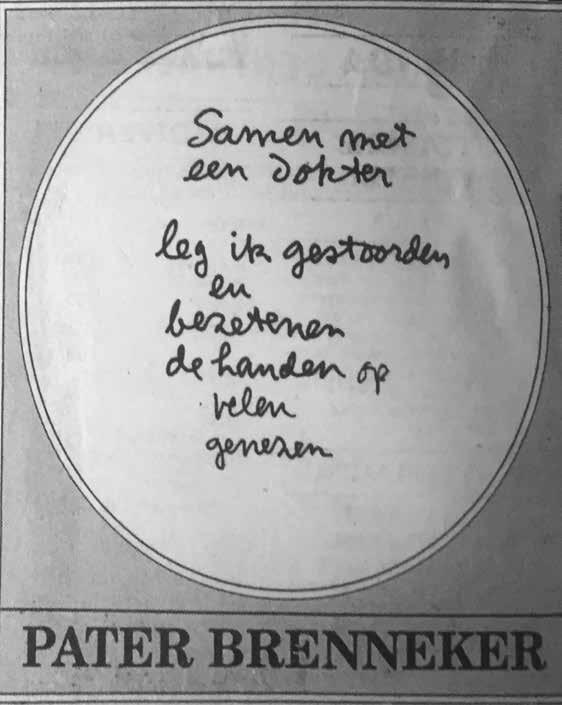 Samen met
een dokter
leg ik gestoorden
en
bezetenen
de handen op
velen
genezen
PATER BRENNEKER